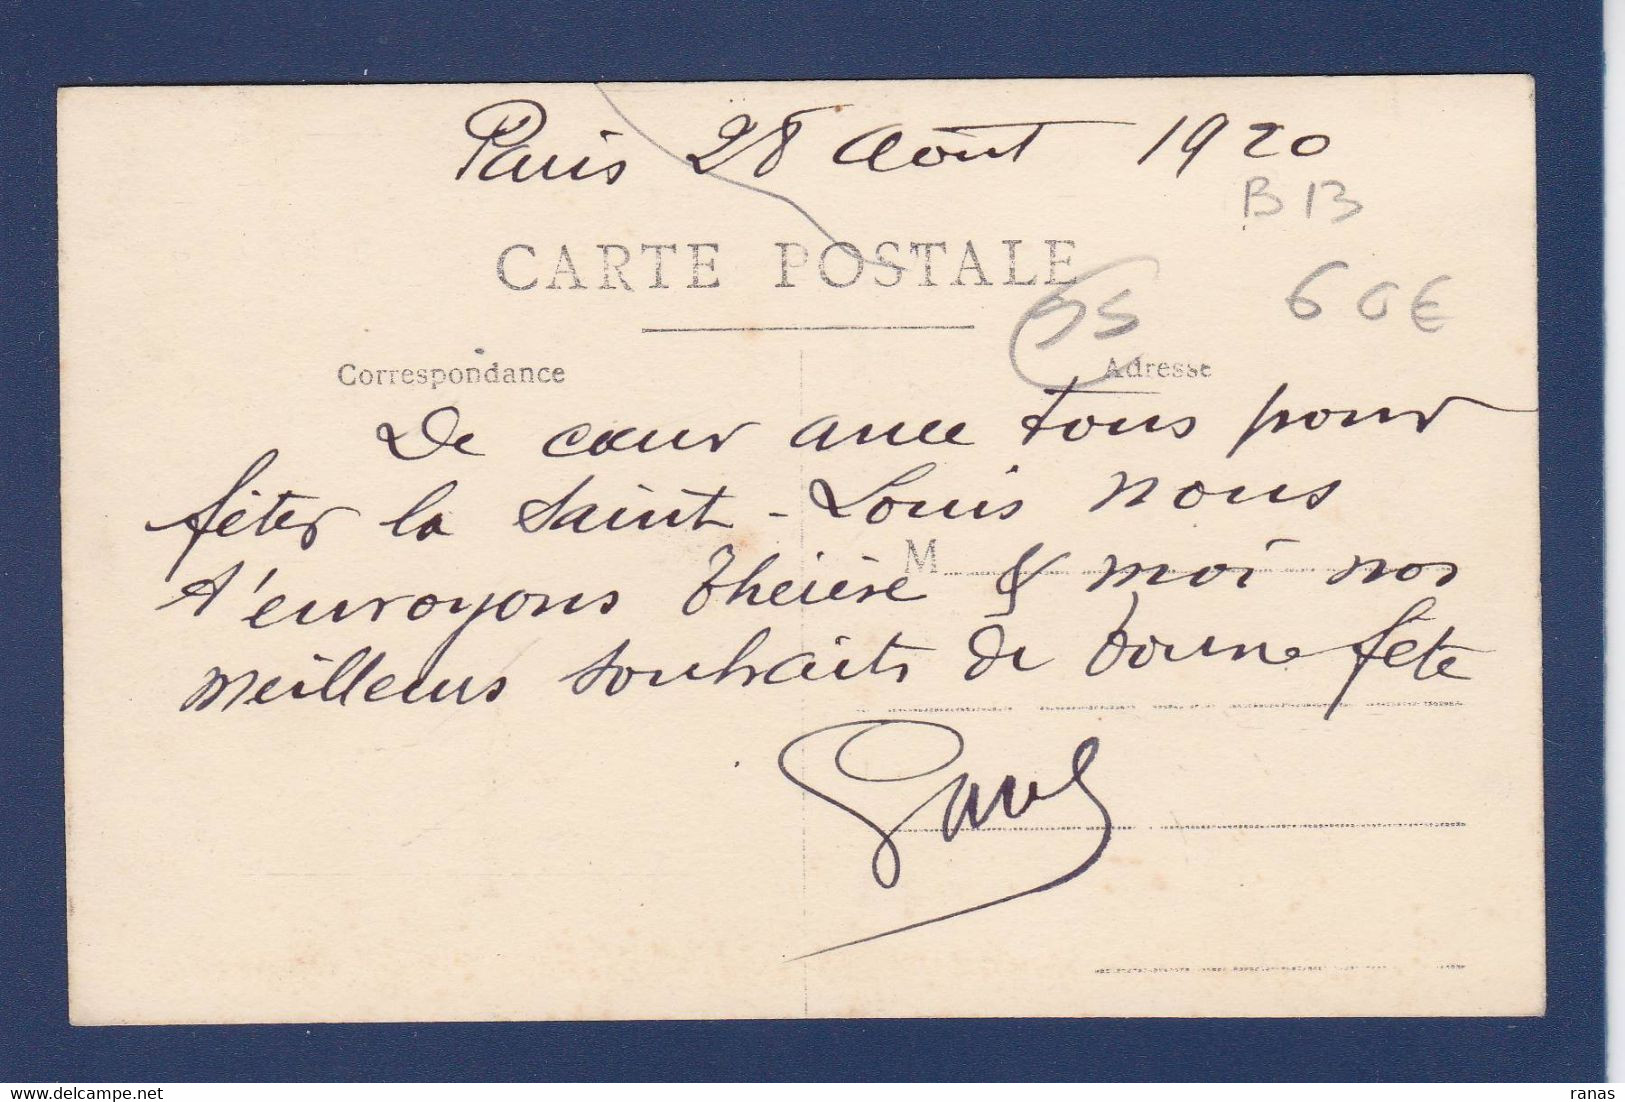 Paris 28 Août 1920
B 13
CARTE POSTALE
60€
Correspondance
Adresse
De cœur avec tous pour
fêter la Saint-Louis nous
M
t'envoyons Thérèse & moi nos
meilleurs souhaits de bonne fête
Paul
ranas